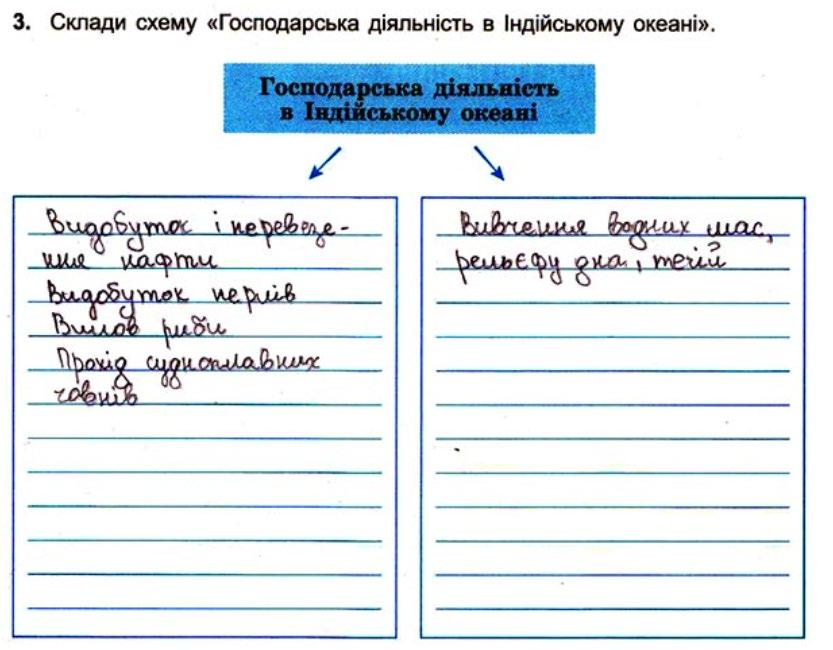 3. Склади схему «Господарська діяльність в Індійському океані».
Господарська діяльність
в Індійському океані
Видобуток і перевезе-
ння нафти
Видобуток перлів
Вилов риби
Прохід судноплавних
човнів
Вивчення водних мас,
рельєфу дна, течій